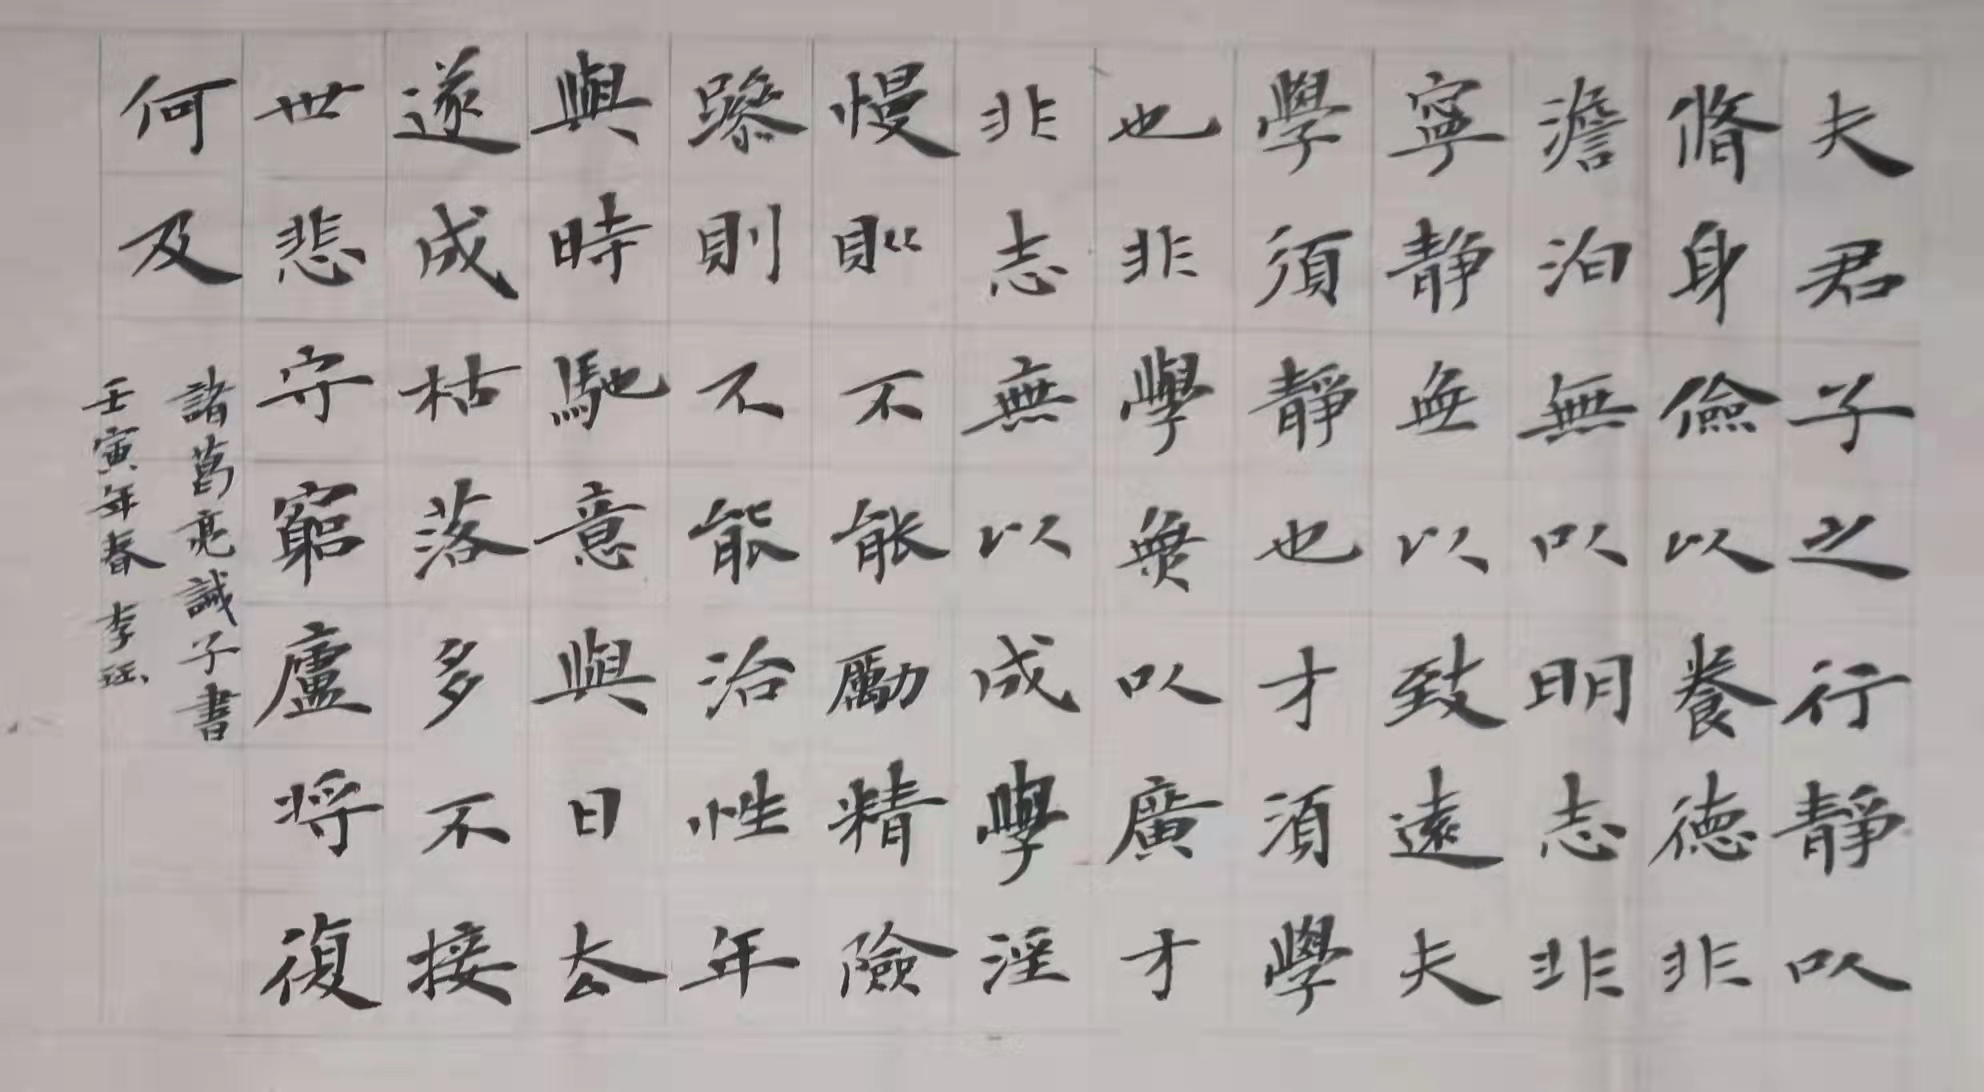 夫君子之行靜以
脩身儉以養德非
澹泊無以明志非
寧靜無以致遠夫
學須靜也才須學
也非學無以廣才
非志無以成學淫
慢則不能勵精險
躁則不能治性年
與時馳意與日去
遂成枯落多不接
世悲守窮廬將復
何及
諸葛亮誡子書
壬寅年春 李珏